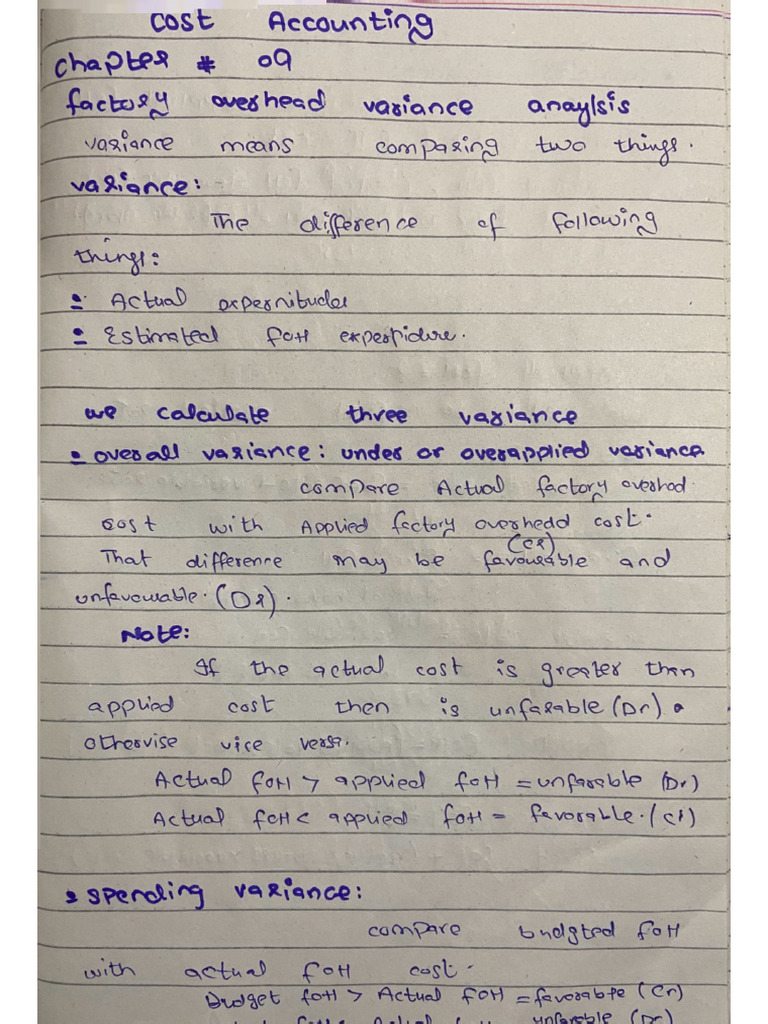 Cost Accounting
Chapter # 09
factory overhead variance anaylsis
variance means comparing two things.
variance:
The difference of following
things:
Actual expernitudes
Estimated FOH experpidure.
we calculate three variance
overall variance: under or overapplied variance
compare Actual factory overhod
cost with Applied factory overhedd cost.
(Cr)
That difference may be favourable and
unfavouable. (Dr).
Note:
If the actual cost is greater then
applied cost then is unfarable (Dr).
othervise vice versa.
Actual FOH > applied FOH = unfarable (Dr)
Actual FOH < applied FOH = favorable. (Cr)
spending variance:
compare bndgted FOH
with actual FOH cost.
Budget FOH > Actual FOH = favorable (Cr)